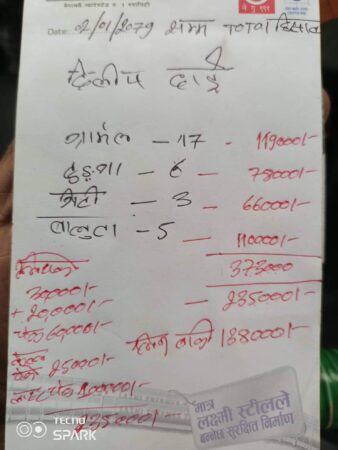 Date: 02/01/2079 सम्म TOTAL हिसाब
दिलीप दाई
ग्राभेल - 17 - 119000/-
ढुङ्गा - 6 - 78000/-
मिटी - 3 - 66000/-
वालुवा - 5 - 110000/-
373000
- 235000/-
लिन बाकी 138000/-
30000/-
+ 20000/-
चेक 60000/-
चेक 25000/-
चेक 100000/-
235000/-
मात्र
लक्ष्मी स्टीलले
बन्दोछ सुरक्षित निर्माण
TECNO
SPARK